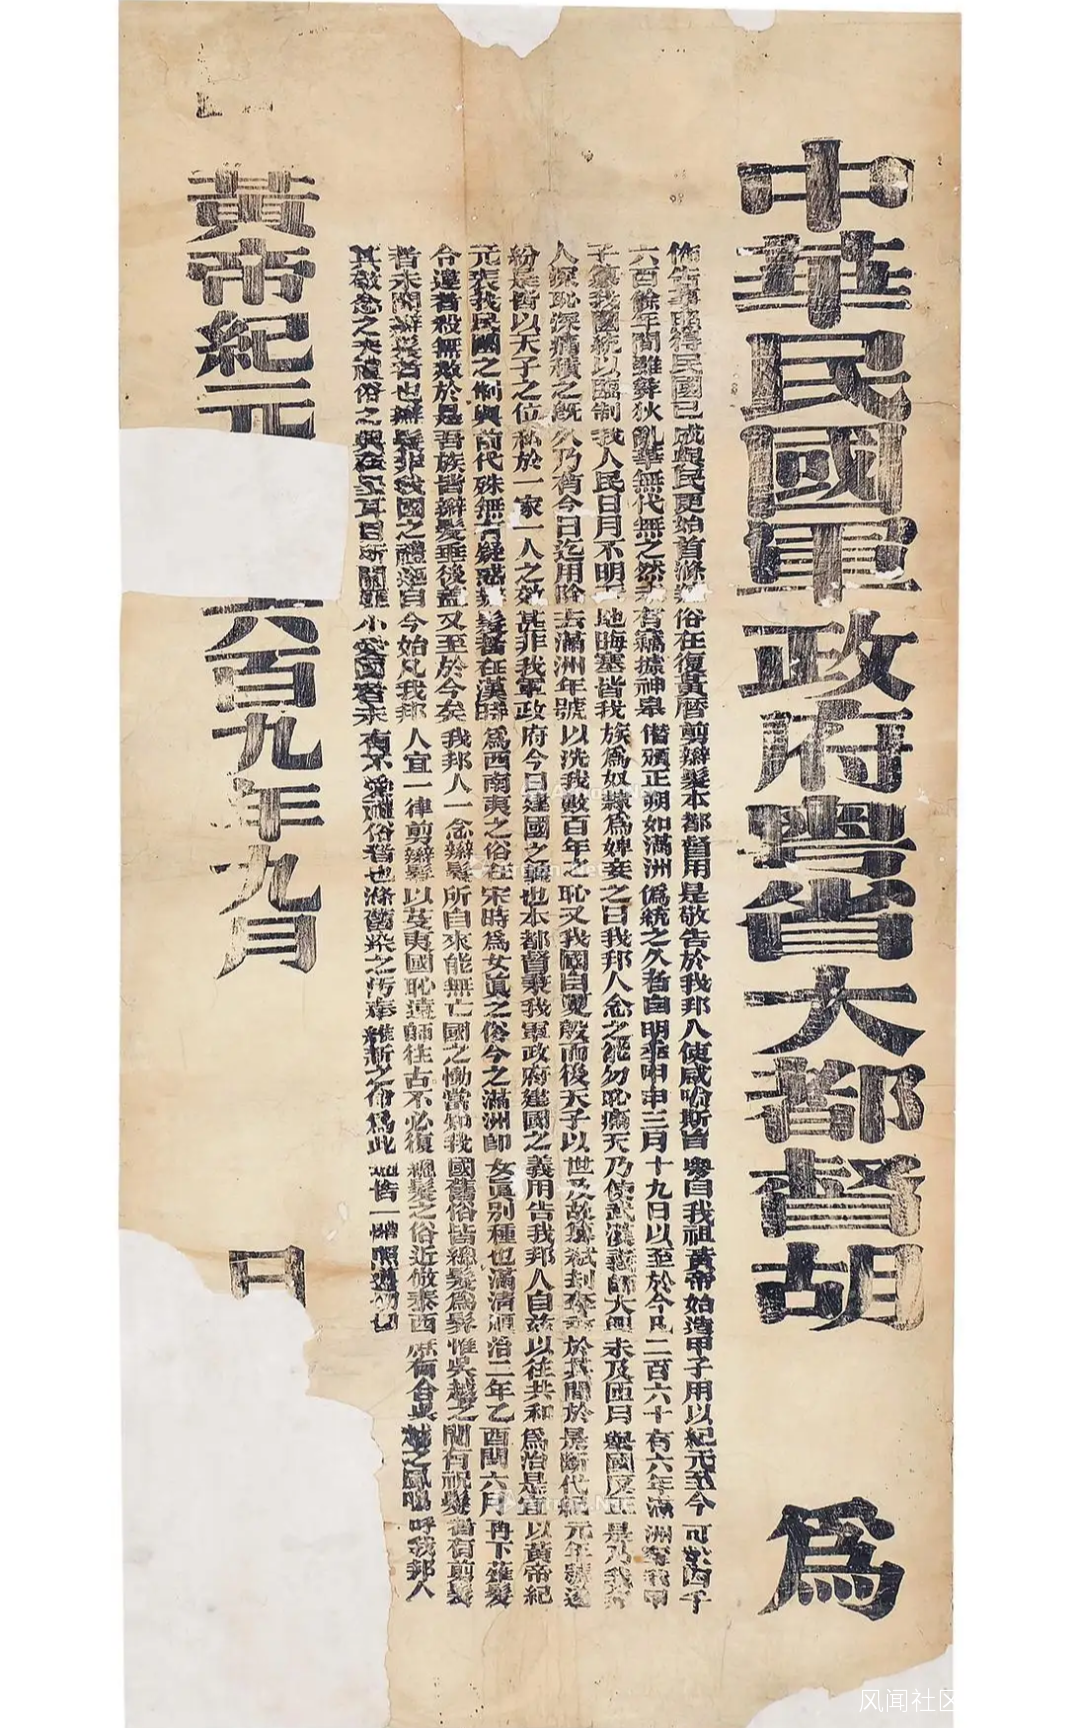 中華民國軍政府粵省大都督胡 為
佈告事照得民國已成與民更始首滌俗在復黃曆剪辮髮本都督用是敬告於我邦人使咸喻斯旨粵自我祖黃帝始造甲子用以紀元至今可四千
六百餘年間雖彝狄亂華無代無之然有竊據神皋僭頒正朔如滿洲僞統之久者自明季甲申三月十九日以至於今凡二百六十有六年滿洲奪我甲
子篡我國統以臨制我人民日月不明地晦塞皆我族為奴隸為婢妾之日我邦人念之能勿恥痛天乃使武漢義師大興未及匝月舉國反正是乃我
人深恥深痛積之既久乃有今日迄用除去滿洲年號以洗我數百年之恥又我國自夏殷而後天子以世及故篡弒於其間於是斷代紀元年號
紛是皆以天子之位私於一家一人之效甚非我軍政府今日建國之也本都督秉我軍政府建國之義用告我邦人自茲以往共和為治是宜以黃帝紀
元表我民國之制與前代殊無有疑惑髮者在漢時為西南夷之俗在宋時為女真之俗今之滿洲即女真別種也滿清順治二年乙酉閏六月再下薙髮
令違者殺無赦於是吾族皆辮髮垂後蓋又至於今矣我邦人一念辮髮所自來能無亡國之慟當知我國舊俗皆總髮為髻惟吳越之間有祝髮者有剪髮
者未聞辮髮者也辮髮非我國之禮自今始凡我邦人宜一律剪辮髮以芟夷國恥遠師往古不必復總髮之俗近倣泰西庶有合吳越之風嗚呼我邦人
其敬念之夫禮俗之興在耳目所關雖小愛國者未有不愛禮俗者也滌舊染之汚奉維新之命為此皆一體照遵切切
黃帝紀元
六百九年九月 日
風聞社区